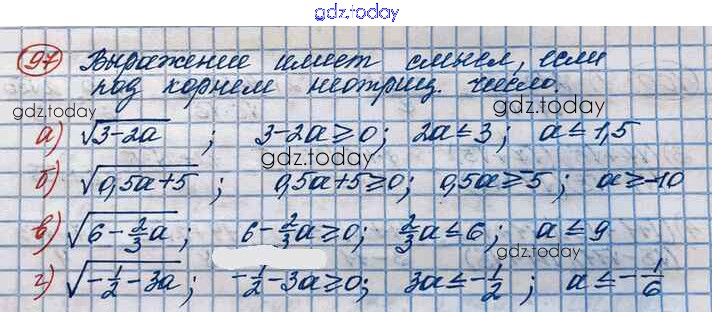 gdz.today
97 Выражение имеет смысл, если
под корнем неотриц. число.
gdz.today gdz.today
а) √(3-2a) ; 3-2a≥0; 2a≤3; a≤1,5
gdz.today
б) √(0,5a+5) ; 0,5a+5≥0; 0,5a≥-5; a≥-10
gdz.today
в) √(6-2/3a) ; 6-2/3a≥0; 2/3a≤6; a≤9
gdz.today
г) √(-1/2-3a) ; -1/2-3a≥0; 3a≤-1/2; a≤-1/6